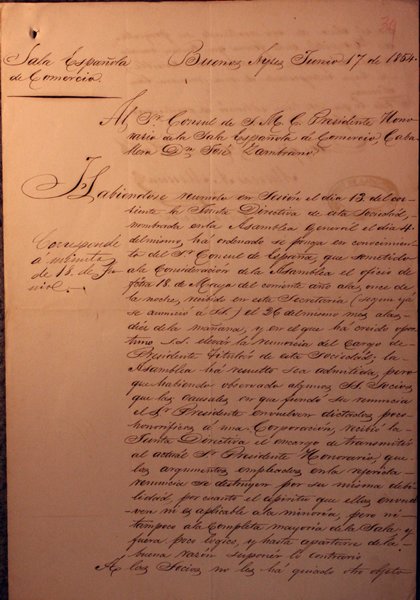 39
Sala Española
de Comercio.
Buenos Ayres Junio 17 de 1854.
Al Sr. Consul de S. M. C. Presidente Hono-
rario de la Sala Española de Comercio, Caba-
llero Dn. José Zambrano,
Habiendose reunido en Sesion el dia 13 del cor-
riente la Junta Directiva de esta Sociedad,
nombrada en la Asamblea General el dia 4
del mismo, ha ordenado se ponga en conocimien-
to del Sr. Consul de España, que sometido
a la Consideracion de la Asamblea el oficio de
fcha 18 de Marzo del corriente año a las once de
la noche, recibido en esta Secretaria (segun que
se anunció a Sd.) el 26 del mismo mes a las
diez de la mañana, y en el que ha creido opor-
tuno Sd. elevar la renuncia del Cargo de
Presidente Titular de esta Sociedad, la
Asamblea ha resuelto sea admitida, pero
que habiendo observado algunos SS. Socios
que las causales en que funda su renuncia
el Sr. Presidente envuelven dictados poco
honorificos á una Corporacion, recibió la
Junta Directiva el encargo de transmitir
al actual Sr. Presidente Honorario, que
los argumentos empleados en la referida
renuncia se destruyen por su misma debi-
lidad, por cuanto el espiritu que ellas envuel-
ven ni es aplicable a la minoria, pero ni
tampoco a la completa mayoria de la Sala, y
fuera poco logico, y hasta apartarse de la
buena razon suponer lo contrario.
A los Socios no les há quedado otro objeto
Corresponde
a minuta
de 18 de Ju-
nio.